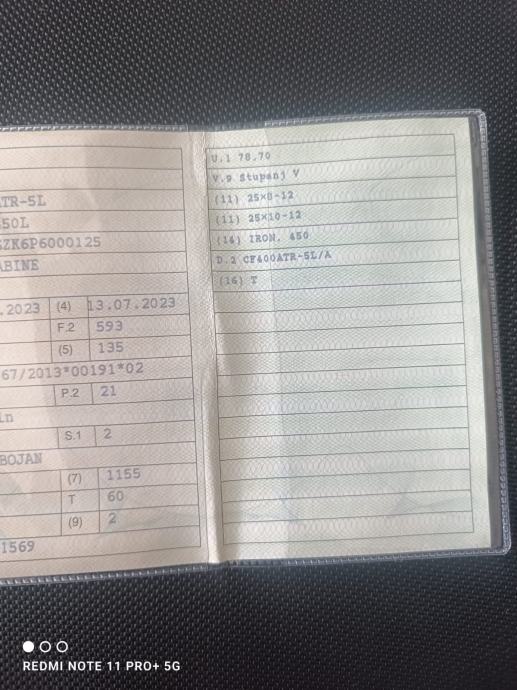 ATR-5L
50L
ZK6P6000125
ABINE
.2023 (4) 13.07.2023
F.2 593
(5) 135
67/2013*00191*02
P.2 21
in
S.1 2
BOJAN
(7) 1155
T 60
(9) 2
1569
U.1 78,70
V.9 Stupanj V
(11) 25×8-12
(11) 25×10-12
(14) IRON. 450
D.2 CF400ATR-5L/A
(16) T
REDMI NOTE 11 PRO+ 5G